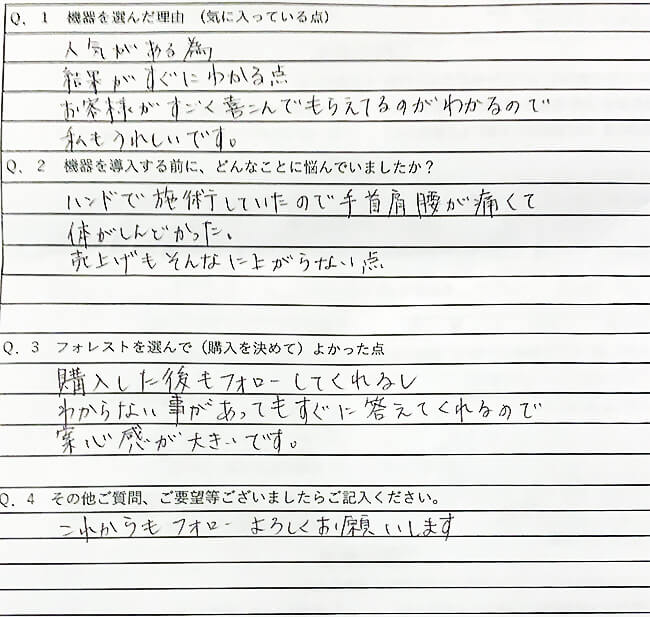 Q．1　機器を選んだ理由　（気に入っている点）
人気がある為
結果がすぐにわかる点
お客様がすごく喜こんでもらえてるのがわかるので
私もうれしいです。
Q．2　機器を導入する前に、どんなことに悩んでいましたか？
ハンドで施術していたので手首肩腰が痛くて
体がしんどかった。
売上げもそんなに上がらない点
Q．3　フォレストを選んで（購入を決めて）よかった点
購入した後もフォローしてくれるし
わからない事があってもすぐに答えてくれるので
安心感が大きいです。
Q．4　その他ご質問、ご要望等ございましたらご記入ください。
これからもフォローよろしくお願いします